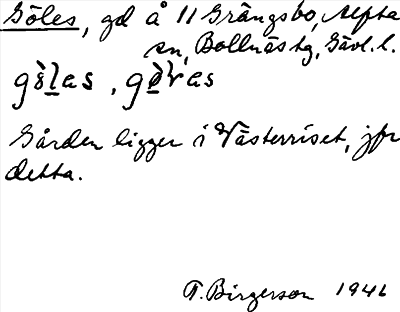 Göles, gd å 11 Grängsbo, Alfta
sn, Bollnäs tg, Gävl. l.
Gården ligger i Västerriset, jfr
detta.
T. Birgerson 1946